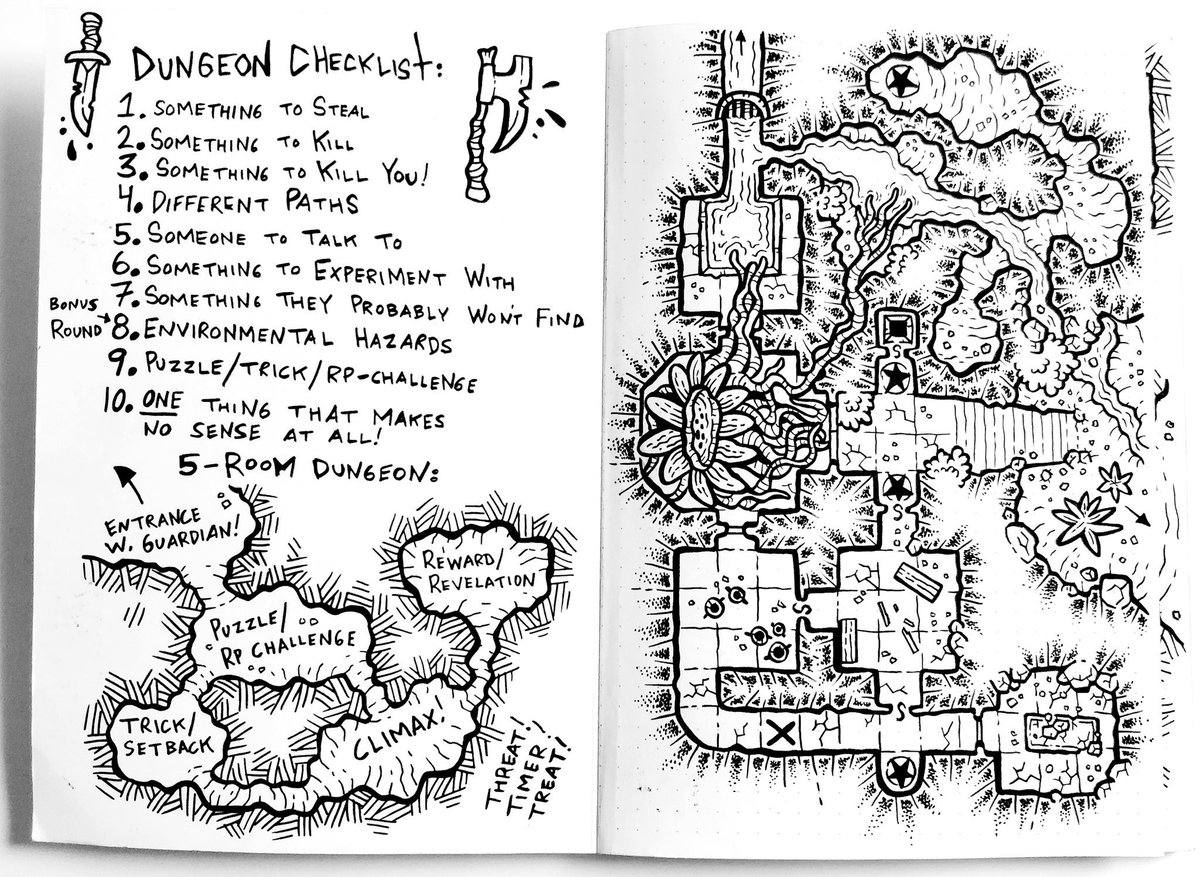 DUNGEON CHECKLIST:
1. SOMETHING TO STEAL
2. SOMETHING TO KILL
3. SOMETHING TO KILL YOU!
4. DIFFERENT PATHS
5. SOMEONE TO TALK TO
6. SOMETHING TO EXPERIMENT WITH
7. SOMETHING THEY PROBABLY WON'T FIND
BONUS
ROUND
8. ENVIRONMENTAL HAZARDS
9. PUZZLE/TRICK/RP-CHALLENGE
10. ONE THING THAT MAKES
NO SENSE AT ALL!
5-ROOM DUNGEON:
ENTRANCE
W. GUARDIAN!
PUZZLE/
RP CHALLENGE
REWARD/
REVELATION
TRICK/
SETBACK
CLIMAX!
THREAT!
TIMER!
TREAT!
S
S
S
S